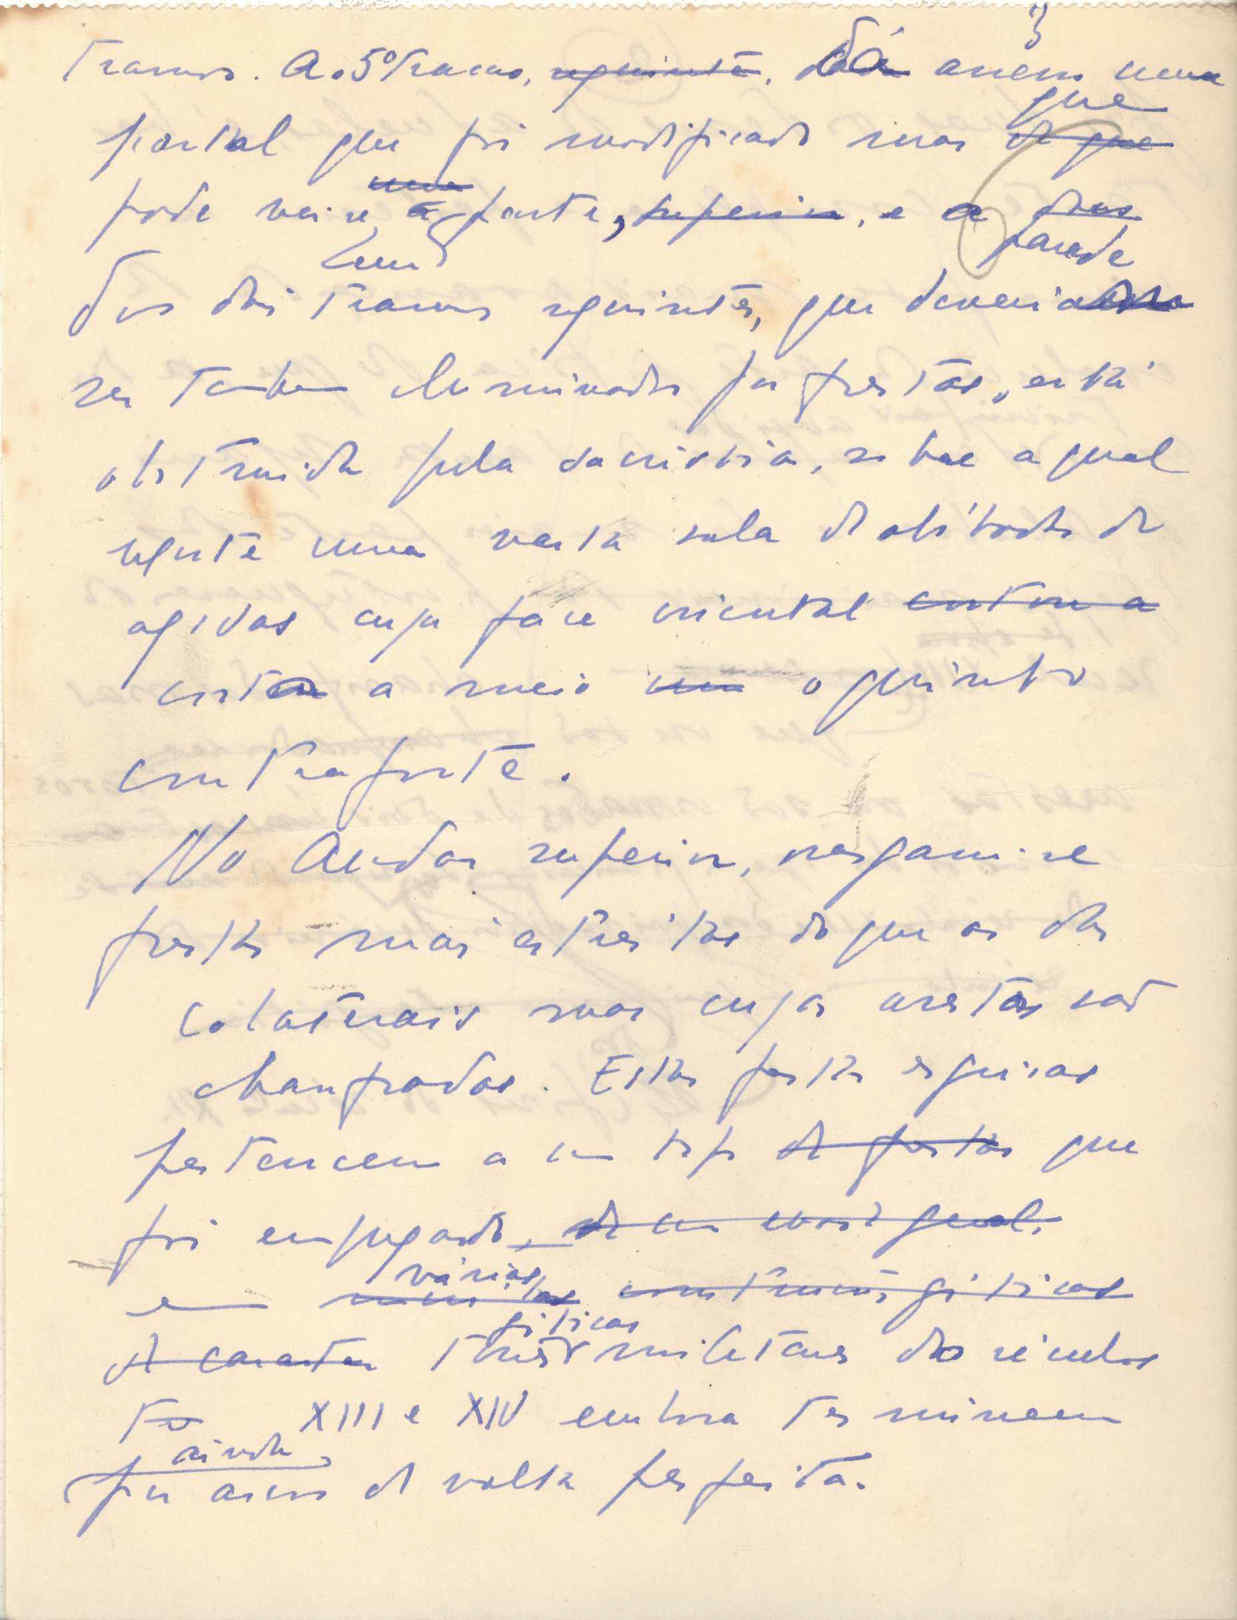 3
tramos. Ao 5º tramo, seguinte, dá acesso uma
portal que foi modificado mas de que que
pode ver-se, uma a parte, superior, e a dos parede
dos dois tramos seguintes, que deveria
ser também iluminados por frestas, está
obstruida pela sacristia, sobre a qual
assenta uma vasta sala de abóbada de
ogivas cuja face oriental corta a
corta a meio um o quinto
contraforte.
No Andar superior, rasgam-se
frestas mais estreitas do que as das
colaterais mas cujas arestas são
chanfradas. Estas frestas esguias
pertencem a um tipo de frestas que
foi empregado, de um modo geral,
em muitas várias construções góticas
de caracter torres góticas militares dos séculos
XIII e XIV embora terminem
ainda por arcos de volta perfeita.